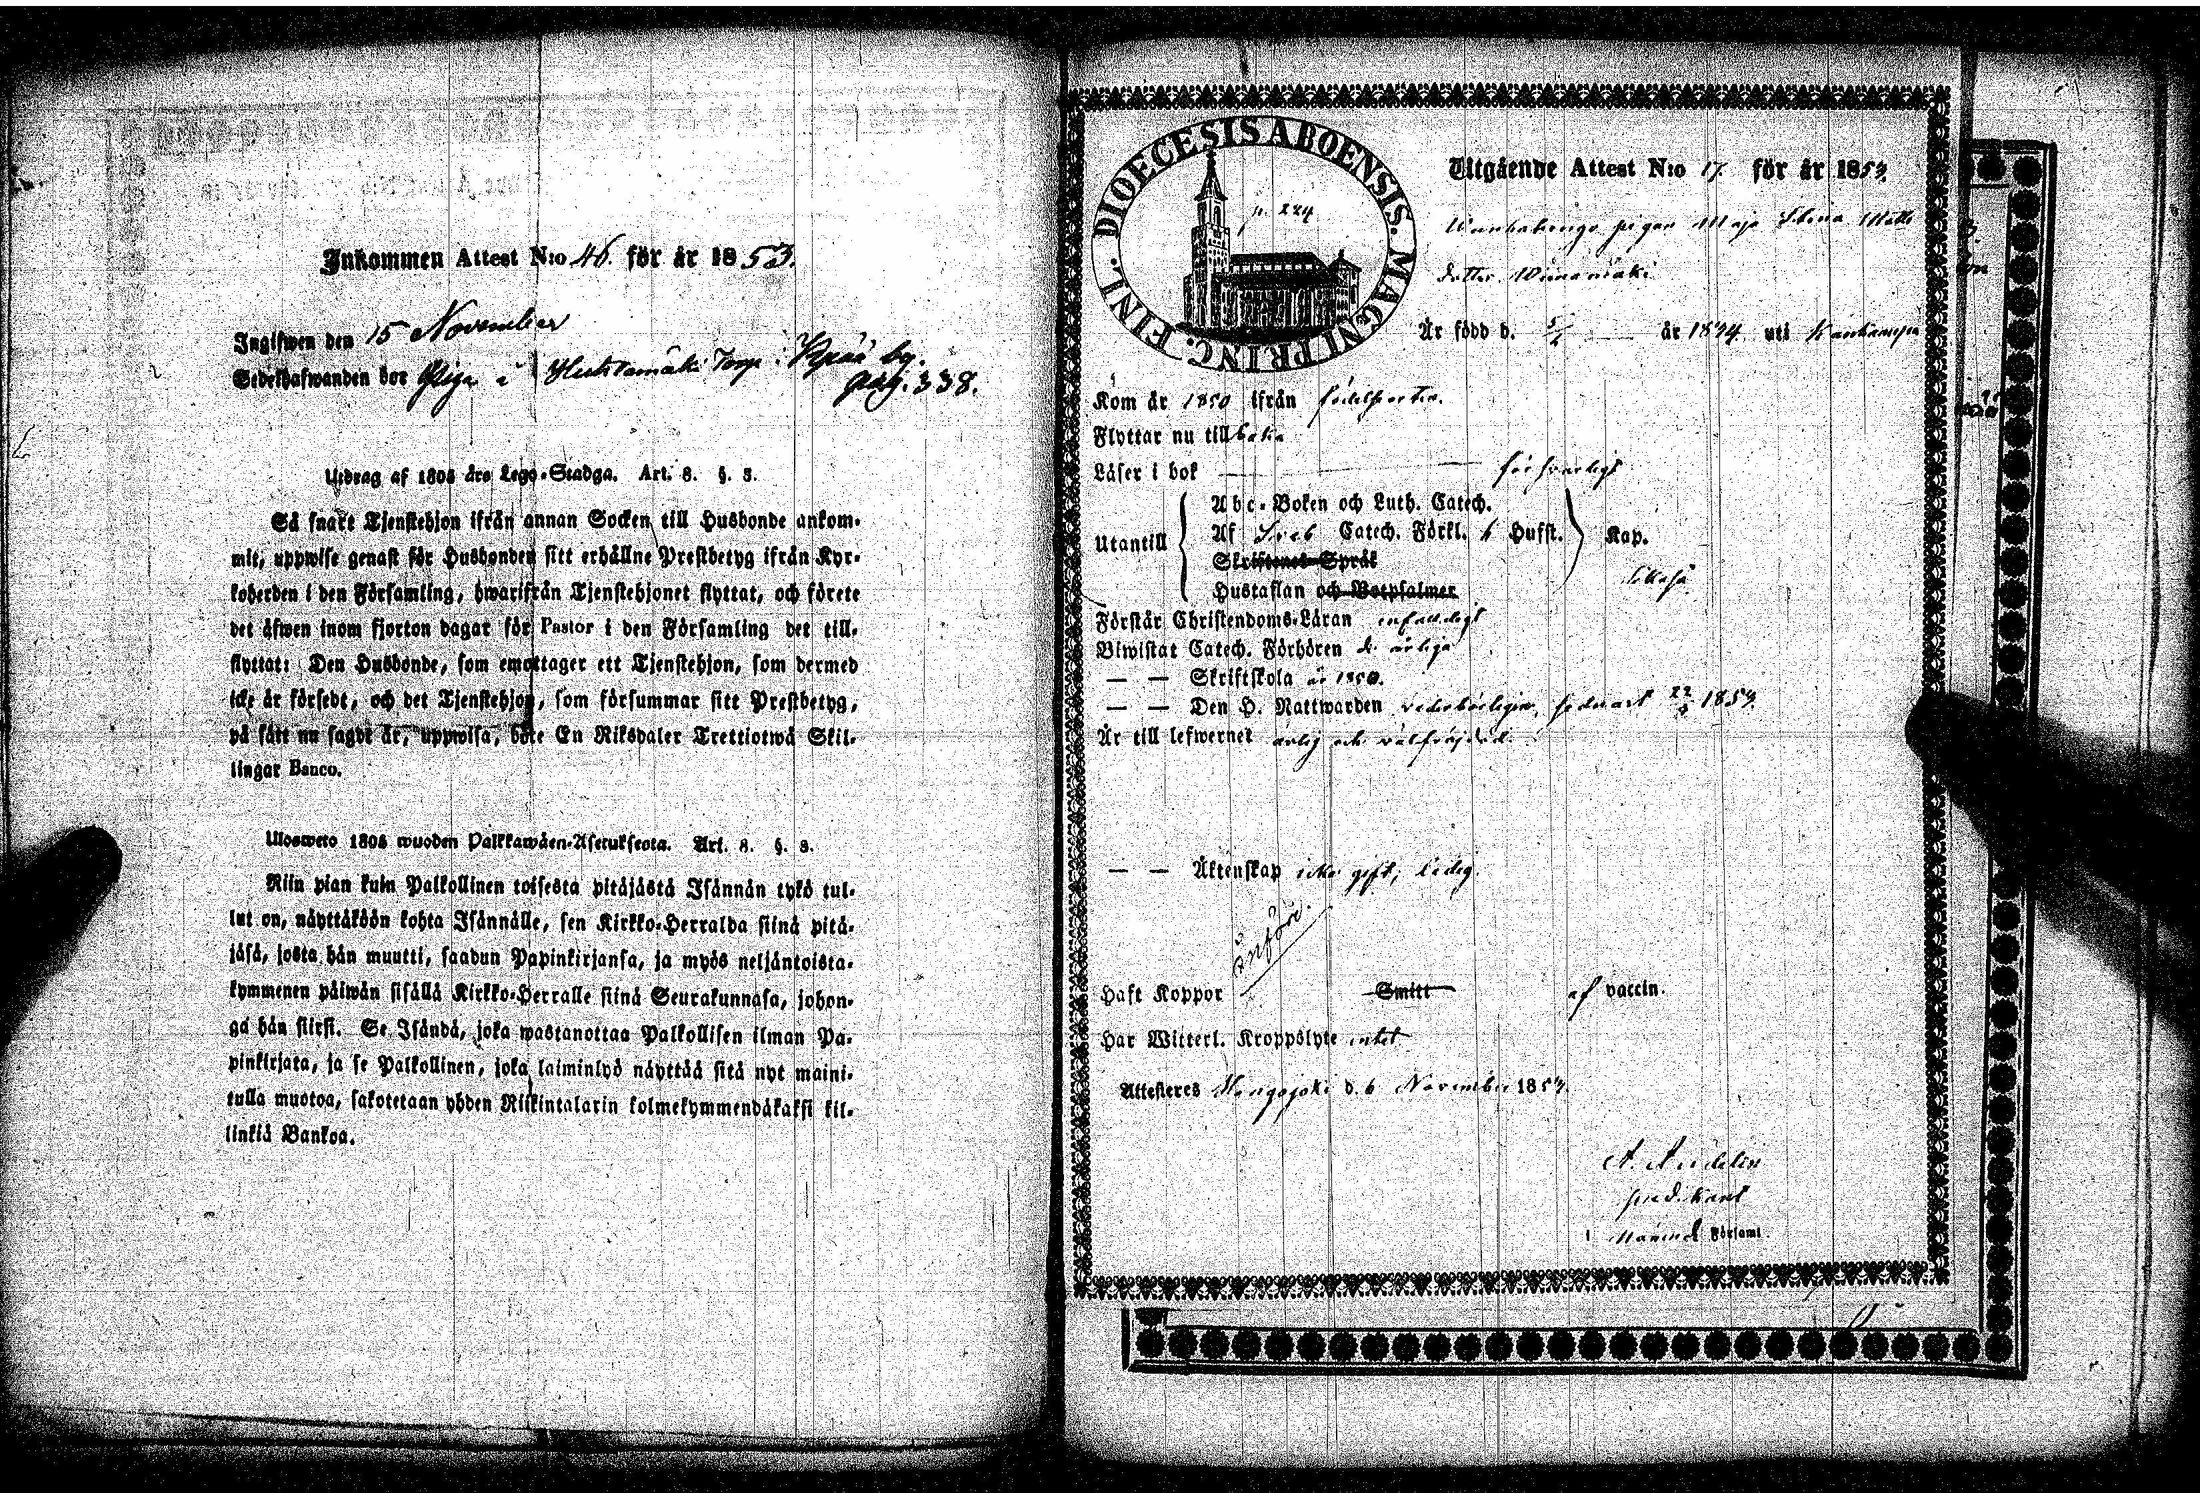 Inkommen Attest N:o 46. för år 1853.
Ingifwen den 15 November
Sedelhafwanden bor Piga i Huhtamäki Torp i by.
pag. 338.
Utdrag af 1805 års Lego-Stadga. Art. 8. §. 3.
Så snart Tjenstehjon ifrån annan Socken till Husbonde ankom-
mit, uppwise genast för Husbonden sitt erhållne Prestbetyg ifrån Kyr-
koherden i den Församling, hwarifrån Tjenstehjonet flyttat, och förete
det äfwen inom fjorton dagar för Pastor i den Församling det till-
flyttat: Den Husbonde, som emottager ett Tjenstehjon, som dermed
icke är försedt, och det Tjenstehjon, som försummar sitt Prestbetyg,
på sätt nu sagdt är, uppwisa, böte En Riksdaler Trettiotwå Skil-
lingar Banco.
Ulosweto 1805 wuoden Palkkawäen-Asetuksesta. Art. 8. §. 3.
Niin pian kuin Palkollinen toisesta pitäjästä Isännän tykö tul-
lut on, näyttäköön kohta Isännälle, sen Kirkko-Herralda siinä pitä-
jäsä, josta hän muutti, saadun Papinkirjansa, ja myös neljäntoista-
kymmenen päiwän sisällä Kirkko-Herralle siinä Seurakunnasa, johon-
ga hän siirsi. Se Isändä, joka wastanottaa Palkollisen ilman Pa-
pinkirjata, ja se Palkollinen, joka laiminlyö näyttää sitä nyt maini-
tulla muotoa, sakotetaan yhden Riikintalarin kolmekymmendäkaksi kil-
linkiä Bankoa.
DIOECESIS ABOENSIS. MAGNI PRINC. FINL.
p. 224
Utgående Attest N:o 17. för år 1853.
pigan Maja Stina Matts
dotter
Är född d. 5/ år 1834. uti Kankaanpä
Kom år 1850 ifrån födelseorten.
Flyttar nu tillbaka
Läser i bok försvarligt
Utantill
Abc-Boken och Luth. Catech.
Af Sveb Catech. Förkl. 6 Hufst. Kap.
Skriftenes Språk
Hustaflan och Botpsalmer
Förstår Christendoms-Läran enfaldigt
Biwistat Catech. Förhören de årliga
— — Skriftskola år 1850.
— — Den H. Nattwarden vederbörligen, sednast 22/ 1853.
Är till lefwernet ärlig och välfräjdad.
— — Äktenskap icke gift, ledig.
införd.
Haft Koppor Smitt af vaccin.
Har Witterl. Kroppslyte intet
Attesteres Hongojoki d. 6 November 1853.
predikant
i Församl.